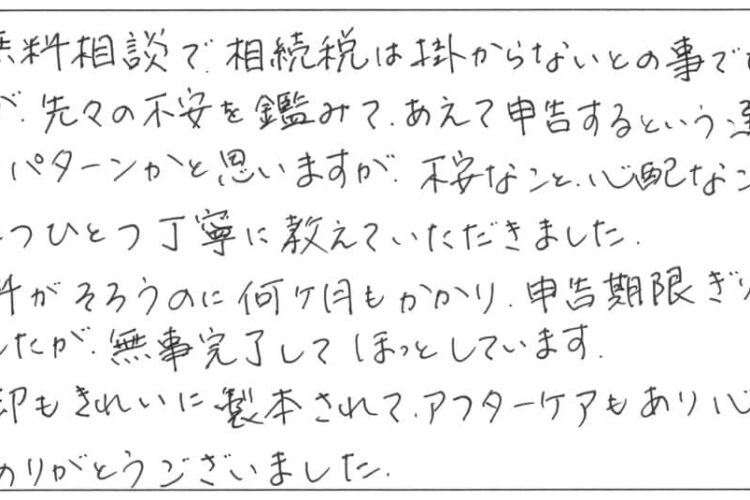 無料相談で、相続税は掛からないとの事で
が、先々の不安を鑑みて、あえて申告するという
パターンかと思いますが、不安なこと、心配なこ
つひとつ丁寧に教えていただきました。
料がそろうのに何ヶ月もかかり、申告期限ぎり
したが、無事完了してほっとしています。
却もきれいに製本されて、アフターケアもあり心
ありがとうございました。